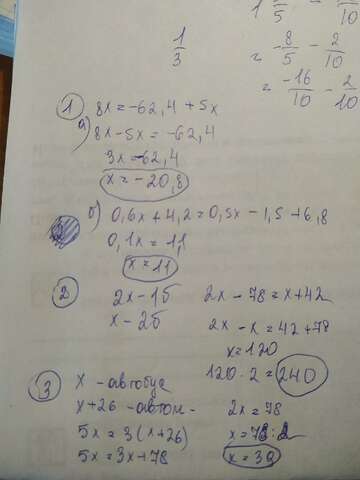 1 8/5 -
1/3
= -8/5 - 2/10
= -16/10 - 2/10
1) 8x = -62,4 + 5x
а) 8x - 5x = -62,4
3x = -62,4
x = -20,8
б) 0,6x + 4,2 = 0,5x - 1,5 + 6,8
0,1x = 1,1
x = 11
2) 2x - 1б
x - 2б
2x - 78 = x + 42
2x - x = 42 + 78
x = 120
120 · 2 = 240
3) x - автобуса
x + 26 - автом -
5x = 3(x + 26)
5x = 3x + 78
2x = 78
x = 78 : 2
x = 39